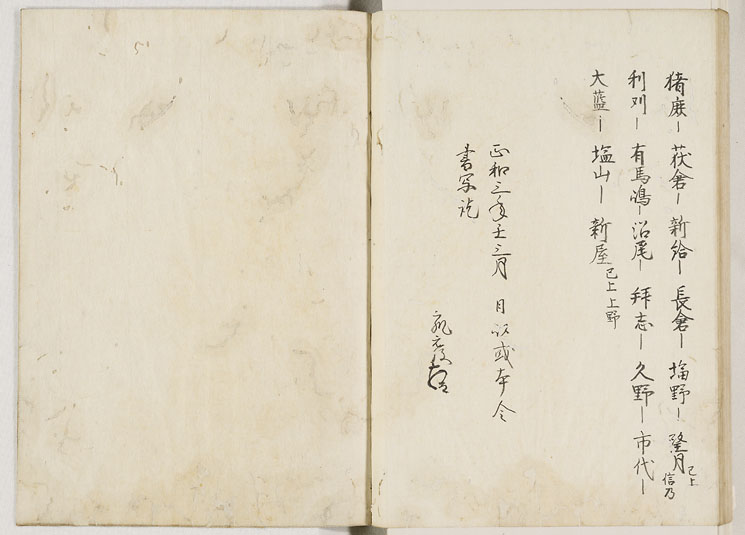 猪鹿ー 荻倉ー 新給ー 長倉ー 塩野ー 望月 已上信乃
利刈ー 有馬嶋ー 沼尾ー 拝志ー 久野ー 市代ー
大藍ー 塩山ー 新屋 已上上野
正和三年壬三月 日以或本令
書写訖